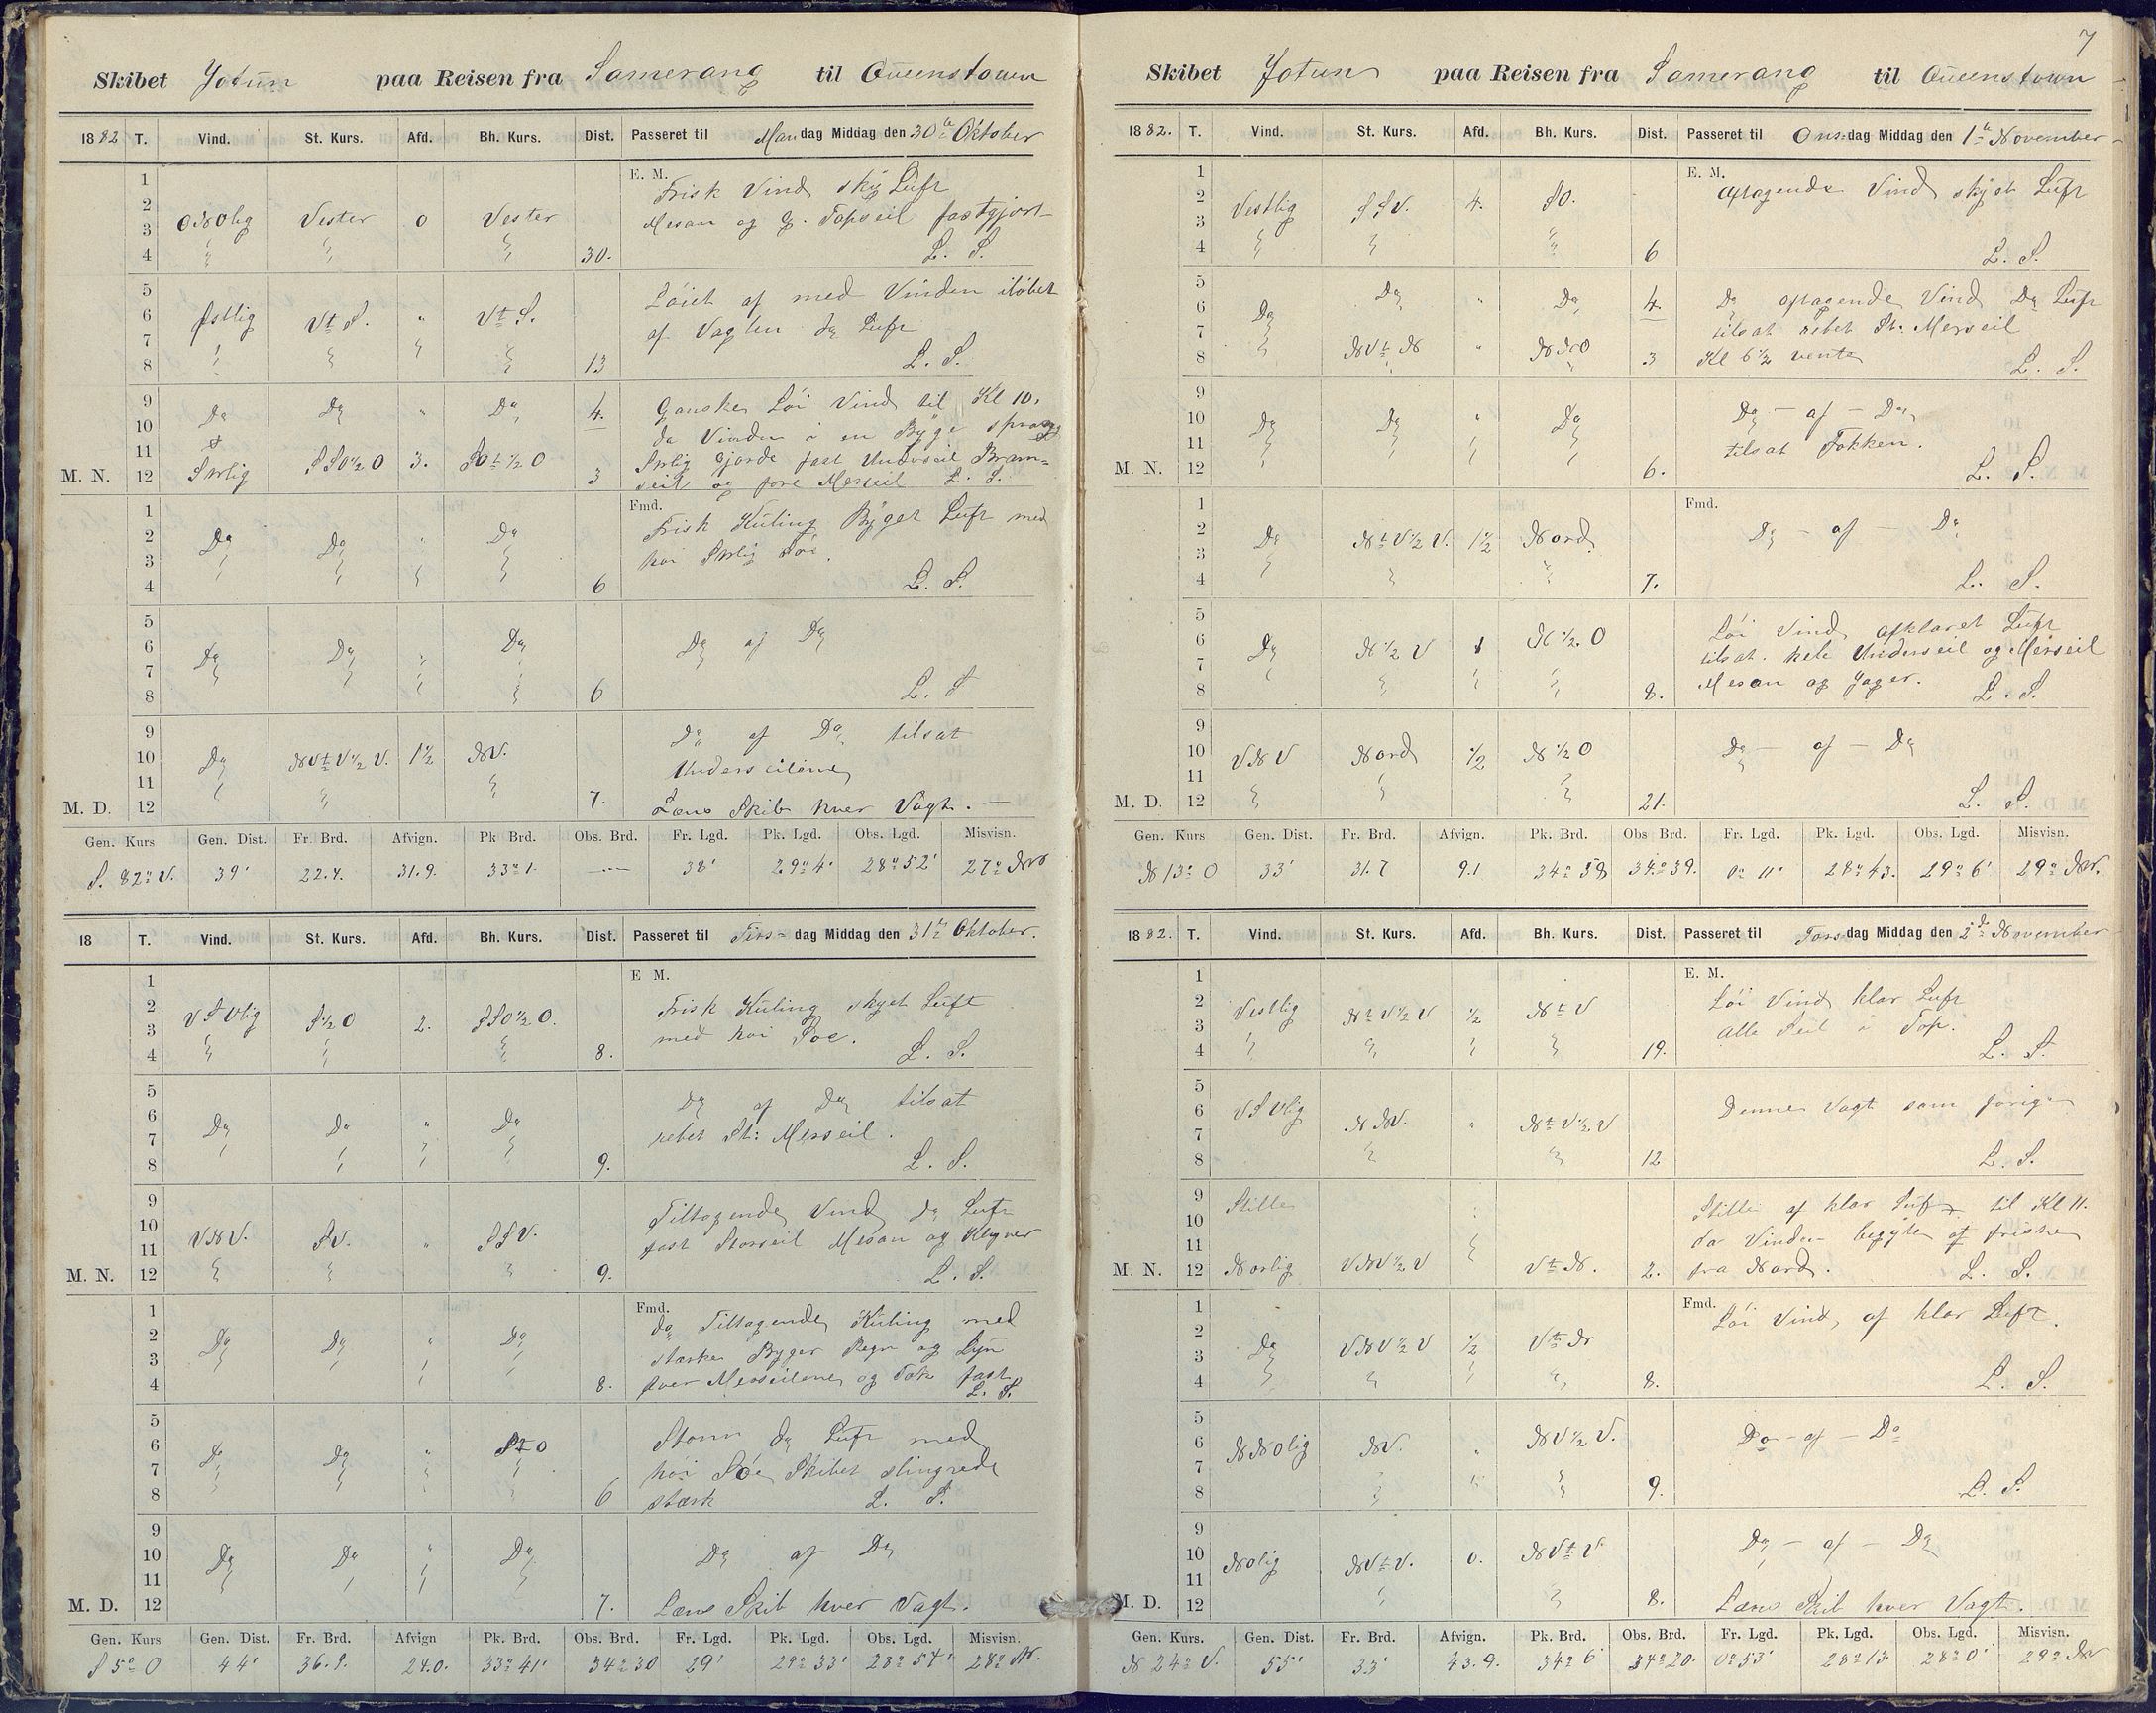 Skibet Jotun paa Reisen fra Samerang til Queenstown
1882 T. Vind. St. Kurs. Afd. Bh. Kurs. Dist. Passeret til Mandag Middag den 30te Oktober
E. M.
1 2 3 4 ONOlig Vester 0 Vester 30. Frisk Vind sky Luft
Mesan og G. Topseil fastgjort
L. S.
5 6 7 8 Østlig Vt S. " Vt S. 13 Løiet af med Vinden iløbet
af Vagten Do Luft
L. S.
9 10 Do Do " Do 4. Ganske Løi Vind til Kl 10.
da Vinden i en Byge sprang
M. N. 11 12 Svlig SSO½O 3. SOt½O 3 Svlig gjorde fast Underseil Bram=
seil og fore Merseil L. S.
Fmd.
1 2 3 4 Do Do " Do 6 Frisk Kuling Byget Luft med
høi Svlig Søe.
L. S.
5 6 7 8 Do Do " Do 6 Do af Do
L. S
9 10 11 12 Do NVtV½V. 1½ NV. 7. Do af Do tilsat
Underseilene
M. D. Læns Skib hver Vagt. —
Gen. Kurs Gen. Dist. Fr. Brd. Afvign. Pk Brd. Obs. Brd. Fr. Lgd. Pk. Lgd. Obs. Lgd. Misvisn.
S. 82° V. 39' 22.4. 31.9. 33° 1. —— 38' 29° 4' 28° 52' 27° NV
18 T. Vind. St. Kurs. Afd. Bh. Kurs. Dist. Passeret til Tirs=dag Middag den 31te Oktober.
E M.
1 2 3 4 VSVlig S½O 2. SSO½O. 8. Frisk Kuling skyet Luft
med høi Søe.
L. S.
5 6 7 8 Do Do " Do 9. Do af Do tilsat
rebet St: Merseil.
L. S.
9 10 11 12 VNV. SV. " SSV. 9. Tiltagende Vind Do Luft
fast Storseil Mesan og Klyver
M. N. L. S.
Fmd.
1 2 3 4 Do Do " Do 8. Do Tiltagende Kuling med
stærke Byger Regn og Lyn
Merseilene og Fok fast
L. S.
5 6 7 8 Do Do " StO 6 Storm Do Luft med
høi Søe Skibet slingrede
stærk L. S.
9 10 11 12 Do Do " Do 7. Do af Do
M. D. Læns Skib hver Vagt.
Gen. Kurs Gen. Dist. Fr. Brd. Afvign Pk. Brd. Obs. Brd. Fr. Lgd. Pk. Lgd. Obs. Lgd. Misvisn.
S 5° O 44' 36.9. 24.0. 33° 41' 34° 30 29' 29° 33' 28° 54' 28° NV.
7
Skibet Jotun paa Reisen fra Samerang til Queenstown
1882. T. Vind. St. Kurs. Afd. Bh. Kurs. Dist. Passeret til Onsdag Middag den 1te November
E. M.
1 2 3 4 Vestlig SSV. 4. SO. 6 Aftagende Vind skyet Luft
L. S.
5 6 Do Do " Do 4. Do aftagende Vind Do Luft
tilsat rebet St: Merseil
7 8 NVt N " NNO 3 Kl 6½ vente
L. S.
9 10 11 12 Do Do " Do 6. Do — af — Do
tilsat Fokken.
M. N. L. S.
Fmd.
1 2 3 4 Do Nt V½V. 1½ Nord 7. Do — af — Do
L. S.
5 6 7 8 Do N½V 1 N½O 8. Løi Vind afklaret Luft
tilsat hele Underseil og Merseil
Mesan og Jager. L. S.
9 10 11 12 VNV Nord ½ N½O 21. Do — af — Do
M. D. L. S.
Gen. Kurs Gen. Dist. Fr. Brd. Afvign. Pk. Brd. Obs Brd. Fr. Lgd. Pk. Lgd. Obs. Lgd. Misvisn.
N 13° O 33' 31.7 9.1 34° 39 34° 39. 0° 11' 28° 43. 29° 6' 29° NV.
1882. T. Vind. St. Kurs. Afd. Bh. Kurs. Dist. Passeret til Torsdag Middag den 2de November
E. M.
1 2 3 4 Vestlig Nt V½V ½ Nt V 19. Løi Vind klar Luft
alle Seil i Top.
L. S.
5 6 7 8 VSVlig NNV. " Nt V½V 12 Denne Vagt som forige
L. S.
9 10 Stille Stille af klar Luft til Kl 11.
da Vinden begyte at friske
M. N. 11 12 Norlig VNV½V Vt N. 2. fra Nord. L. S.
Fmd.
1 2 3 4 Do VNV½V ½ Vt N 8. Løi Vind, af klar Luft.
L. S.
5 6 7 8 NNOlig NV. " NV½V. 9. Do — af — Do
L. S.
9 10 11 12 NOlig NVt V. 0. NVt V 8. Do — af — Do
M. D. Læns Skib hver Vagt.
Gen. Kurs. Gen. Dist. Fr. Brd. Afvign. Pk. Brd. Obs. Brd. Fr. Lgd. Pk. Lgd. Obs. Lgd. Misvisn.
N 24° V. 55' 33' 43.9. 34° 6 34° 20. 0° 53' 28° 13 28° 0' 29° NV